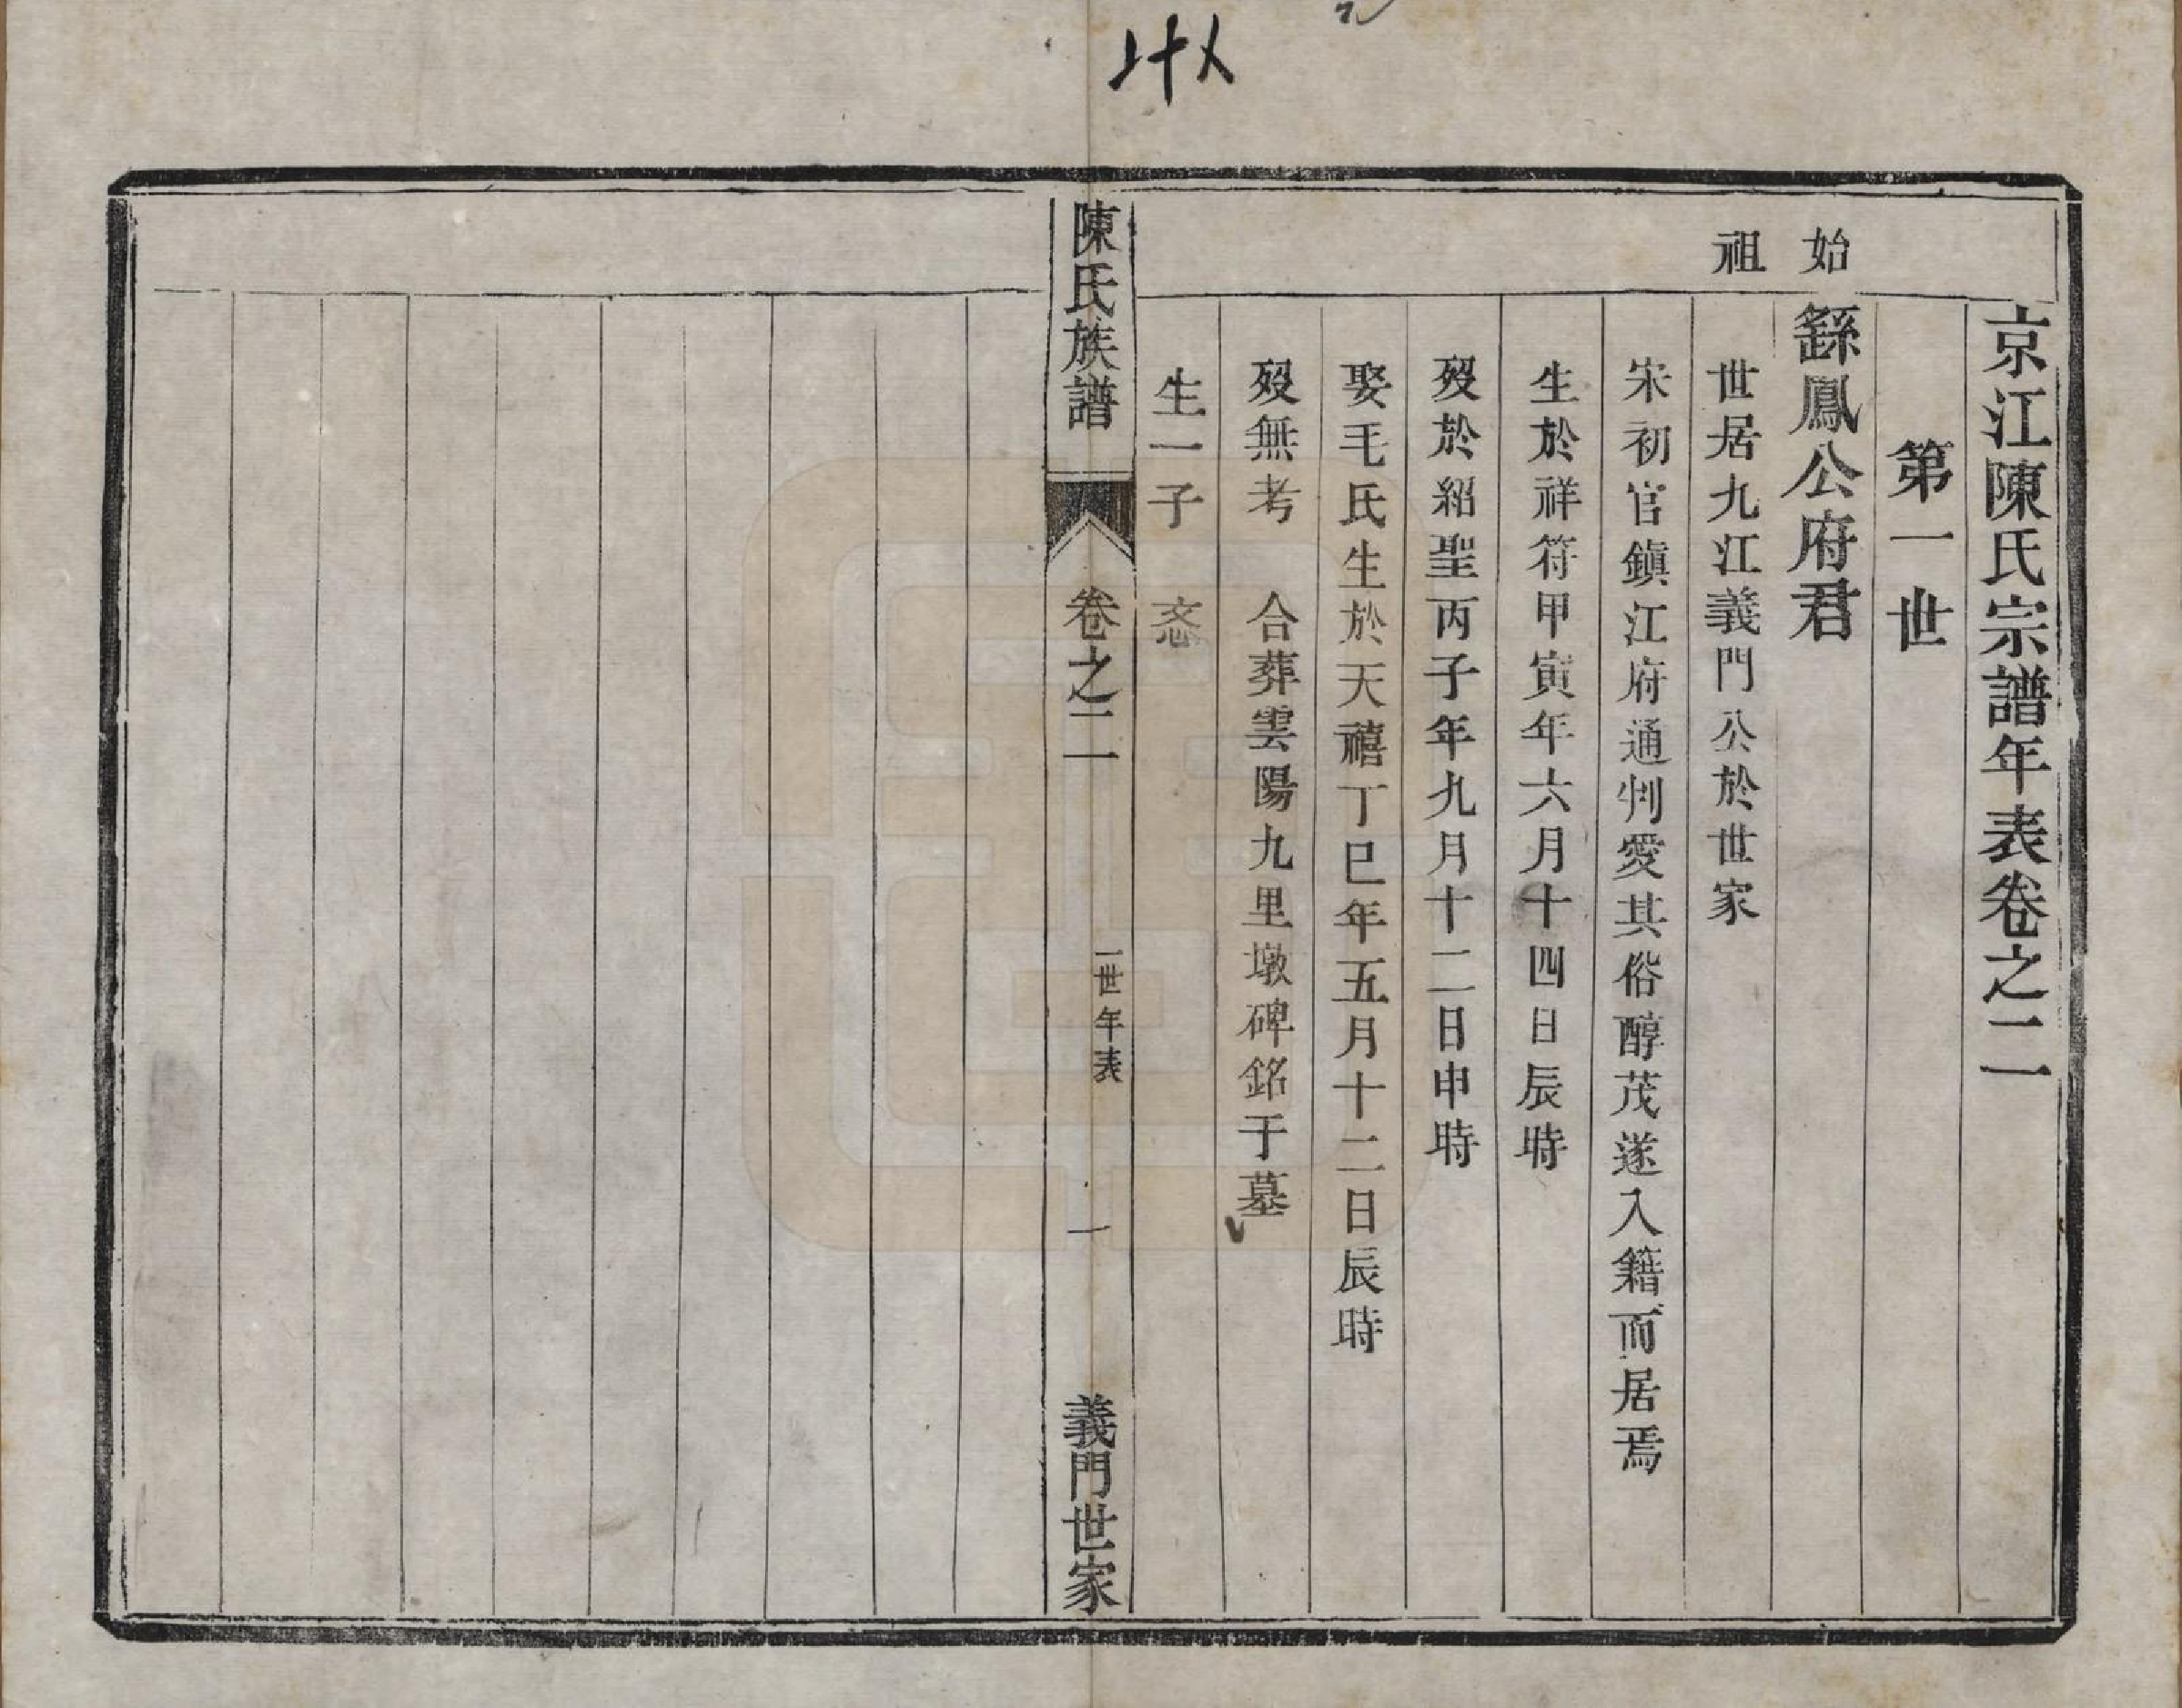 京江陳氏宗譜年表卷之二
第一世
始祖
繇鳳公府君
世居九江義門公於世家
宋初官鎭江府通判愛其俗醇茂遂入籍而居焉
生於祥符甲寅年六月十四日辰時
歿於紹聖丙子年九月十二日申時
娶毛氏生於天禧丁巳年五月十二日辰時
歿無考 合葬雲陽九里墩碑銘于墓
生一子
陳氏族譜 卷之二 一世年表 一 義門世家